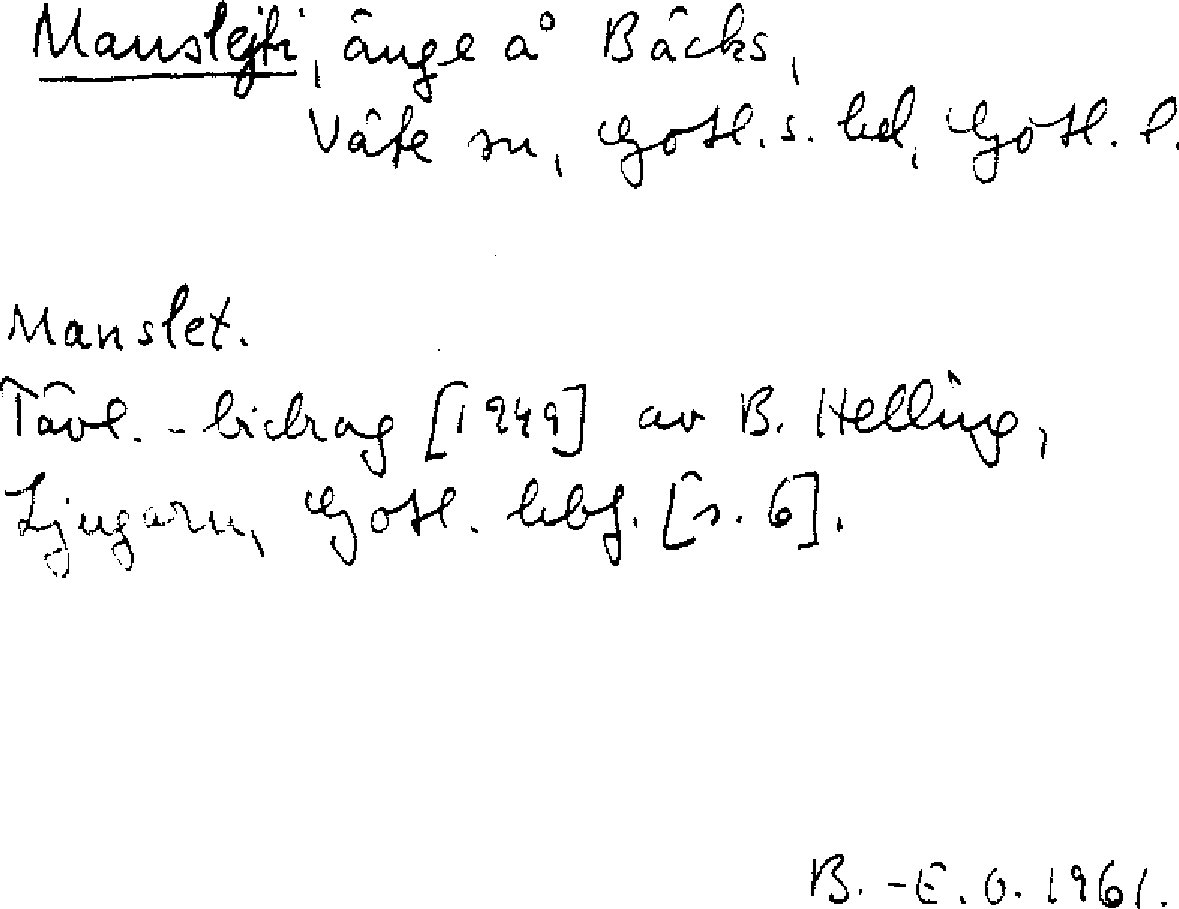 Manslejti, änge å Bäcks,
Väte sn, Gotl. s. hd, Gotl. l.
Manslet.
Tävl.-bidrag [1949] av B. Helling,
Ljugarn, Gotl. hbf. [s. 6].
B.-E. O. 1961.